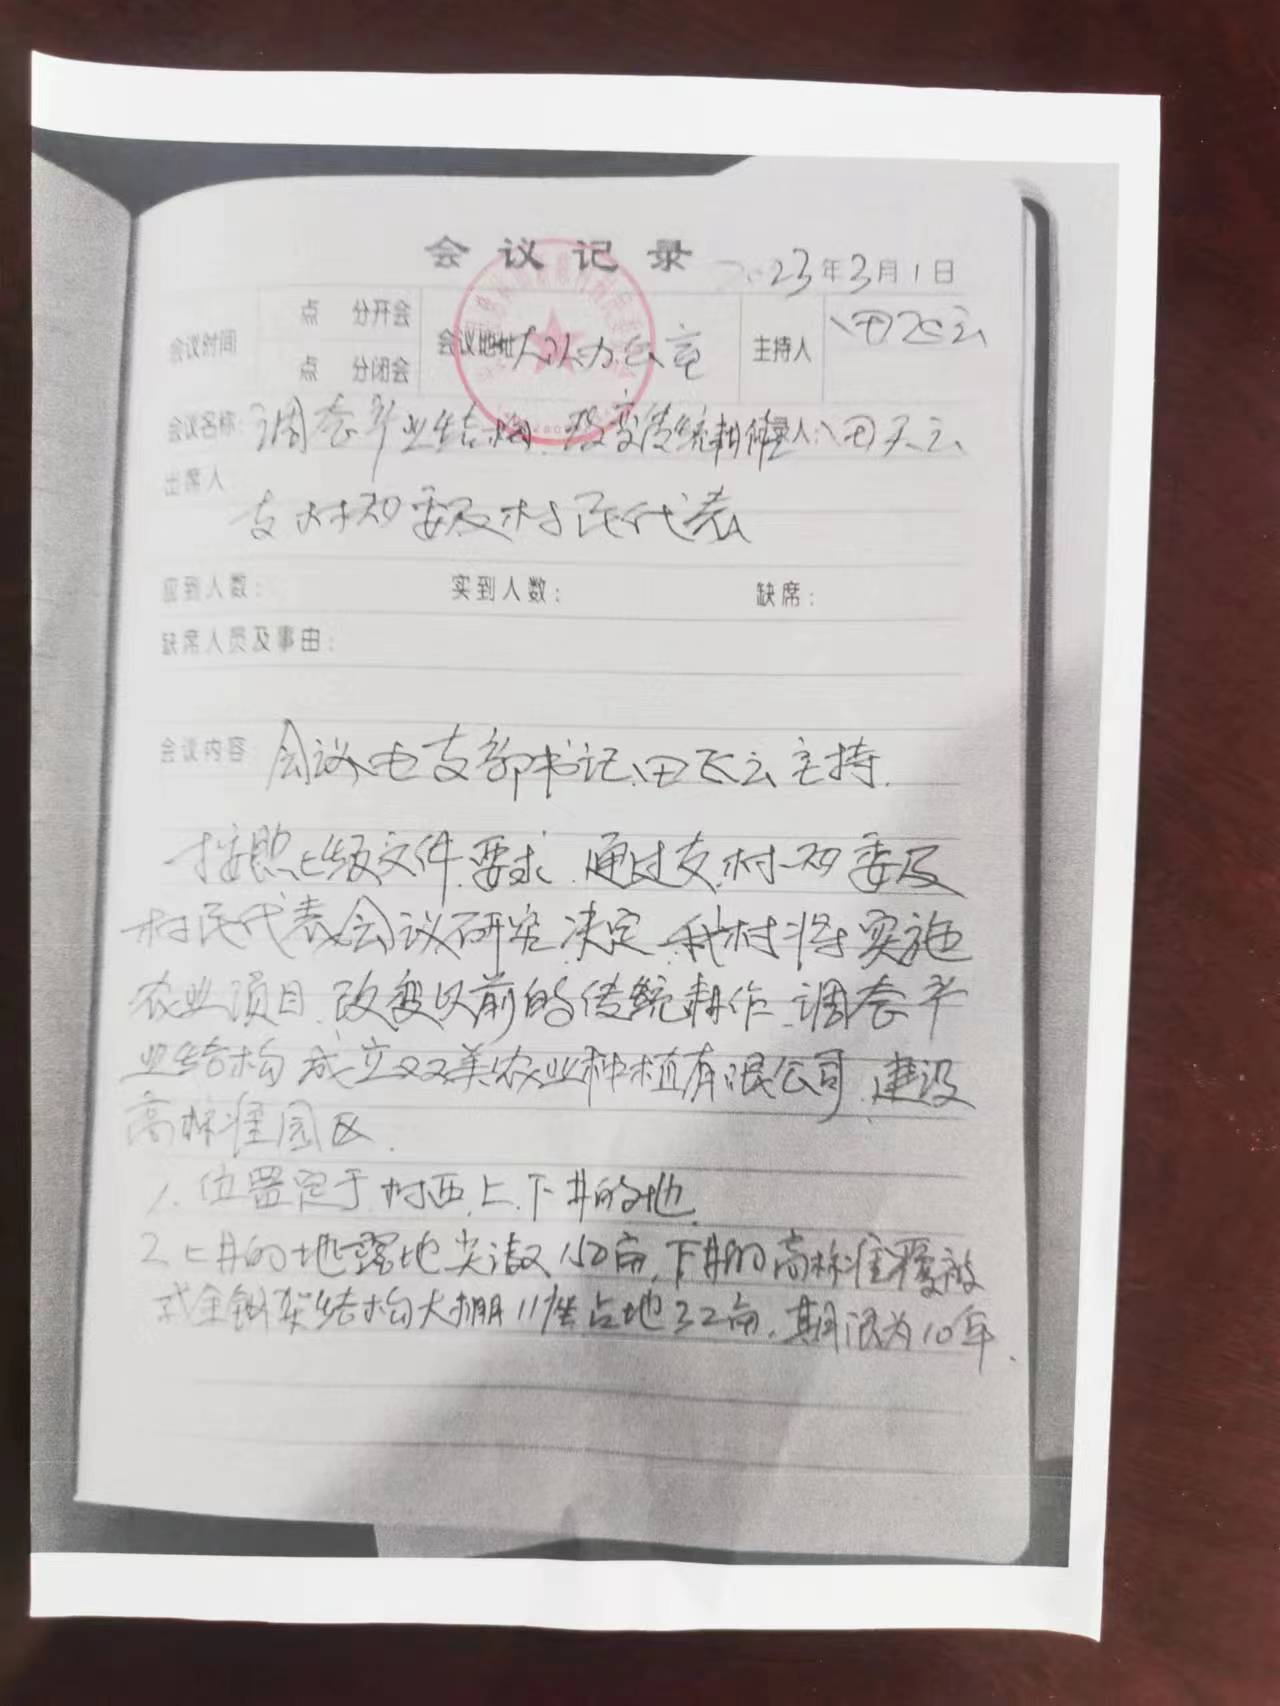 会议记录 2023年3月1日
会议时间 点 分开会 会议地址 大队办公室 主持人 田飞云
点 分闭会
会议名称: 调整产业结构 改变传统耕作 记录人: 田天云
出席人
支村两委及村民代表
应到人数: 实到人数: 缺席:
缺席人员及事由:
会议内容 会议由支部书记田飞云主持.
按照上级文件要求.通过支.村两委及
村民代表会议研究决定 我村将实施
农业项目.改变以前的传统耕作.调整产
业结构 成立双美农业种植有限公司.建设
高标准园区.
1. 位置定于村西上.下井的地.
2. 上井的地露地尖椒150亩,下井的高标准
全钢架结构大棚11座占地32亩.期限为10年.